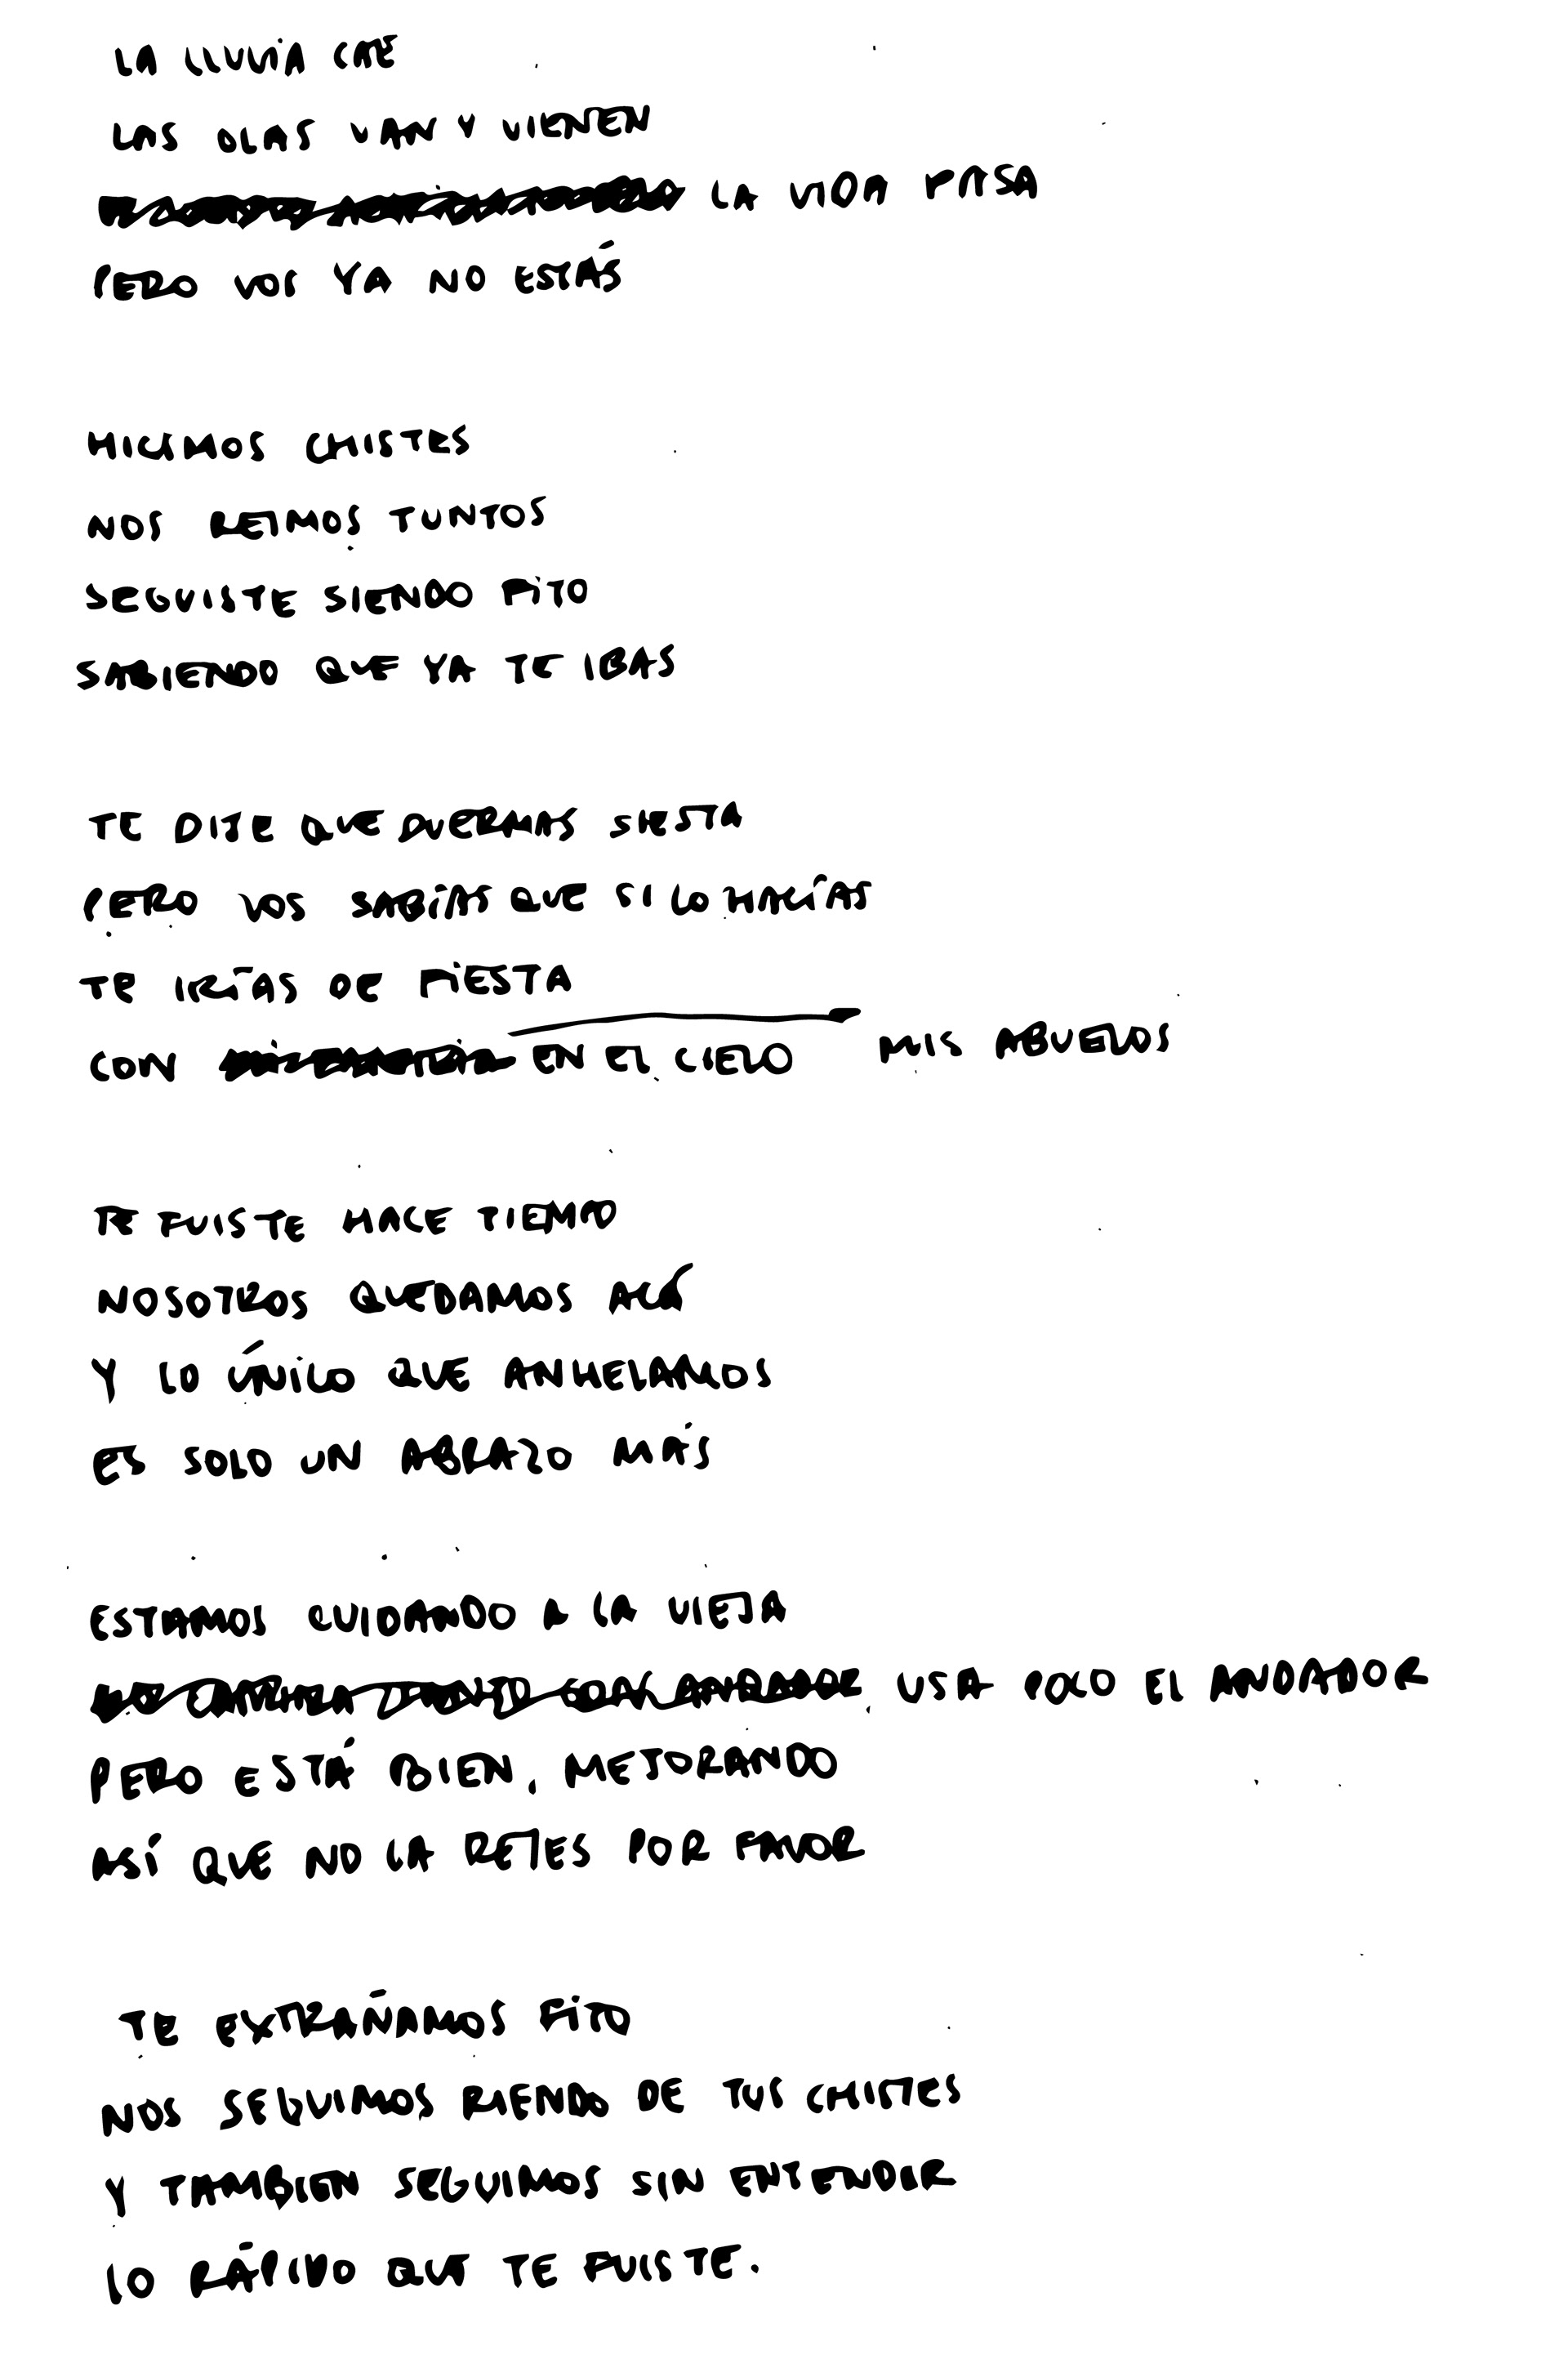 LA LLUVIA CAE
LAS OLAS VAN Y VIENEN
LA VIDA PASA
PERO VOS YA NO ESTÁS
HICIMOS CHISTES
NOS REIMOS JUNTOS
SEGUISTE SIENDO FITO
SABIENDO QUE YA TE IBAS
TE DIJE QUE DUERMAS SIESTA
PERO VOS SABÍAS QUE SI LO HACÍAS
TE IRÍAS DE FIESTA
CON EN EL CIELO MIS ABUELOS
TE FUISTE HACE TIEMPO
NOSOTROS QUEDAMOS ACÁ
Y LO ÚNICO QUE ANHELAMOS
ES SOLO UN ABRAZO MÁS
ESTAMOS CUIDANDO A LA VIEJA
USA POCO EL ANDADOR
PERO ESTÁ BIEN, MEJORANDO
ASÍ QUE NO LA RETES POR FAVOR
TE EXTRAÑAMOS FITO
NOS SEGUIMOS RIENDO DE TUS CHISTES
Y TAMBIEN SEGUIMOS SIN ENTENDER
LO RÁPIDO QUE TE FUISTE.